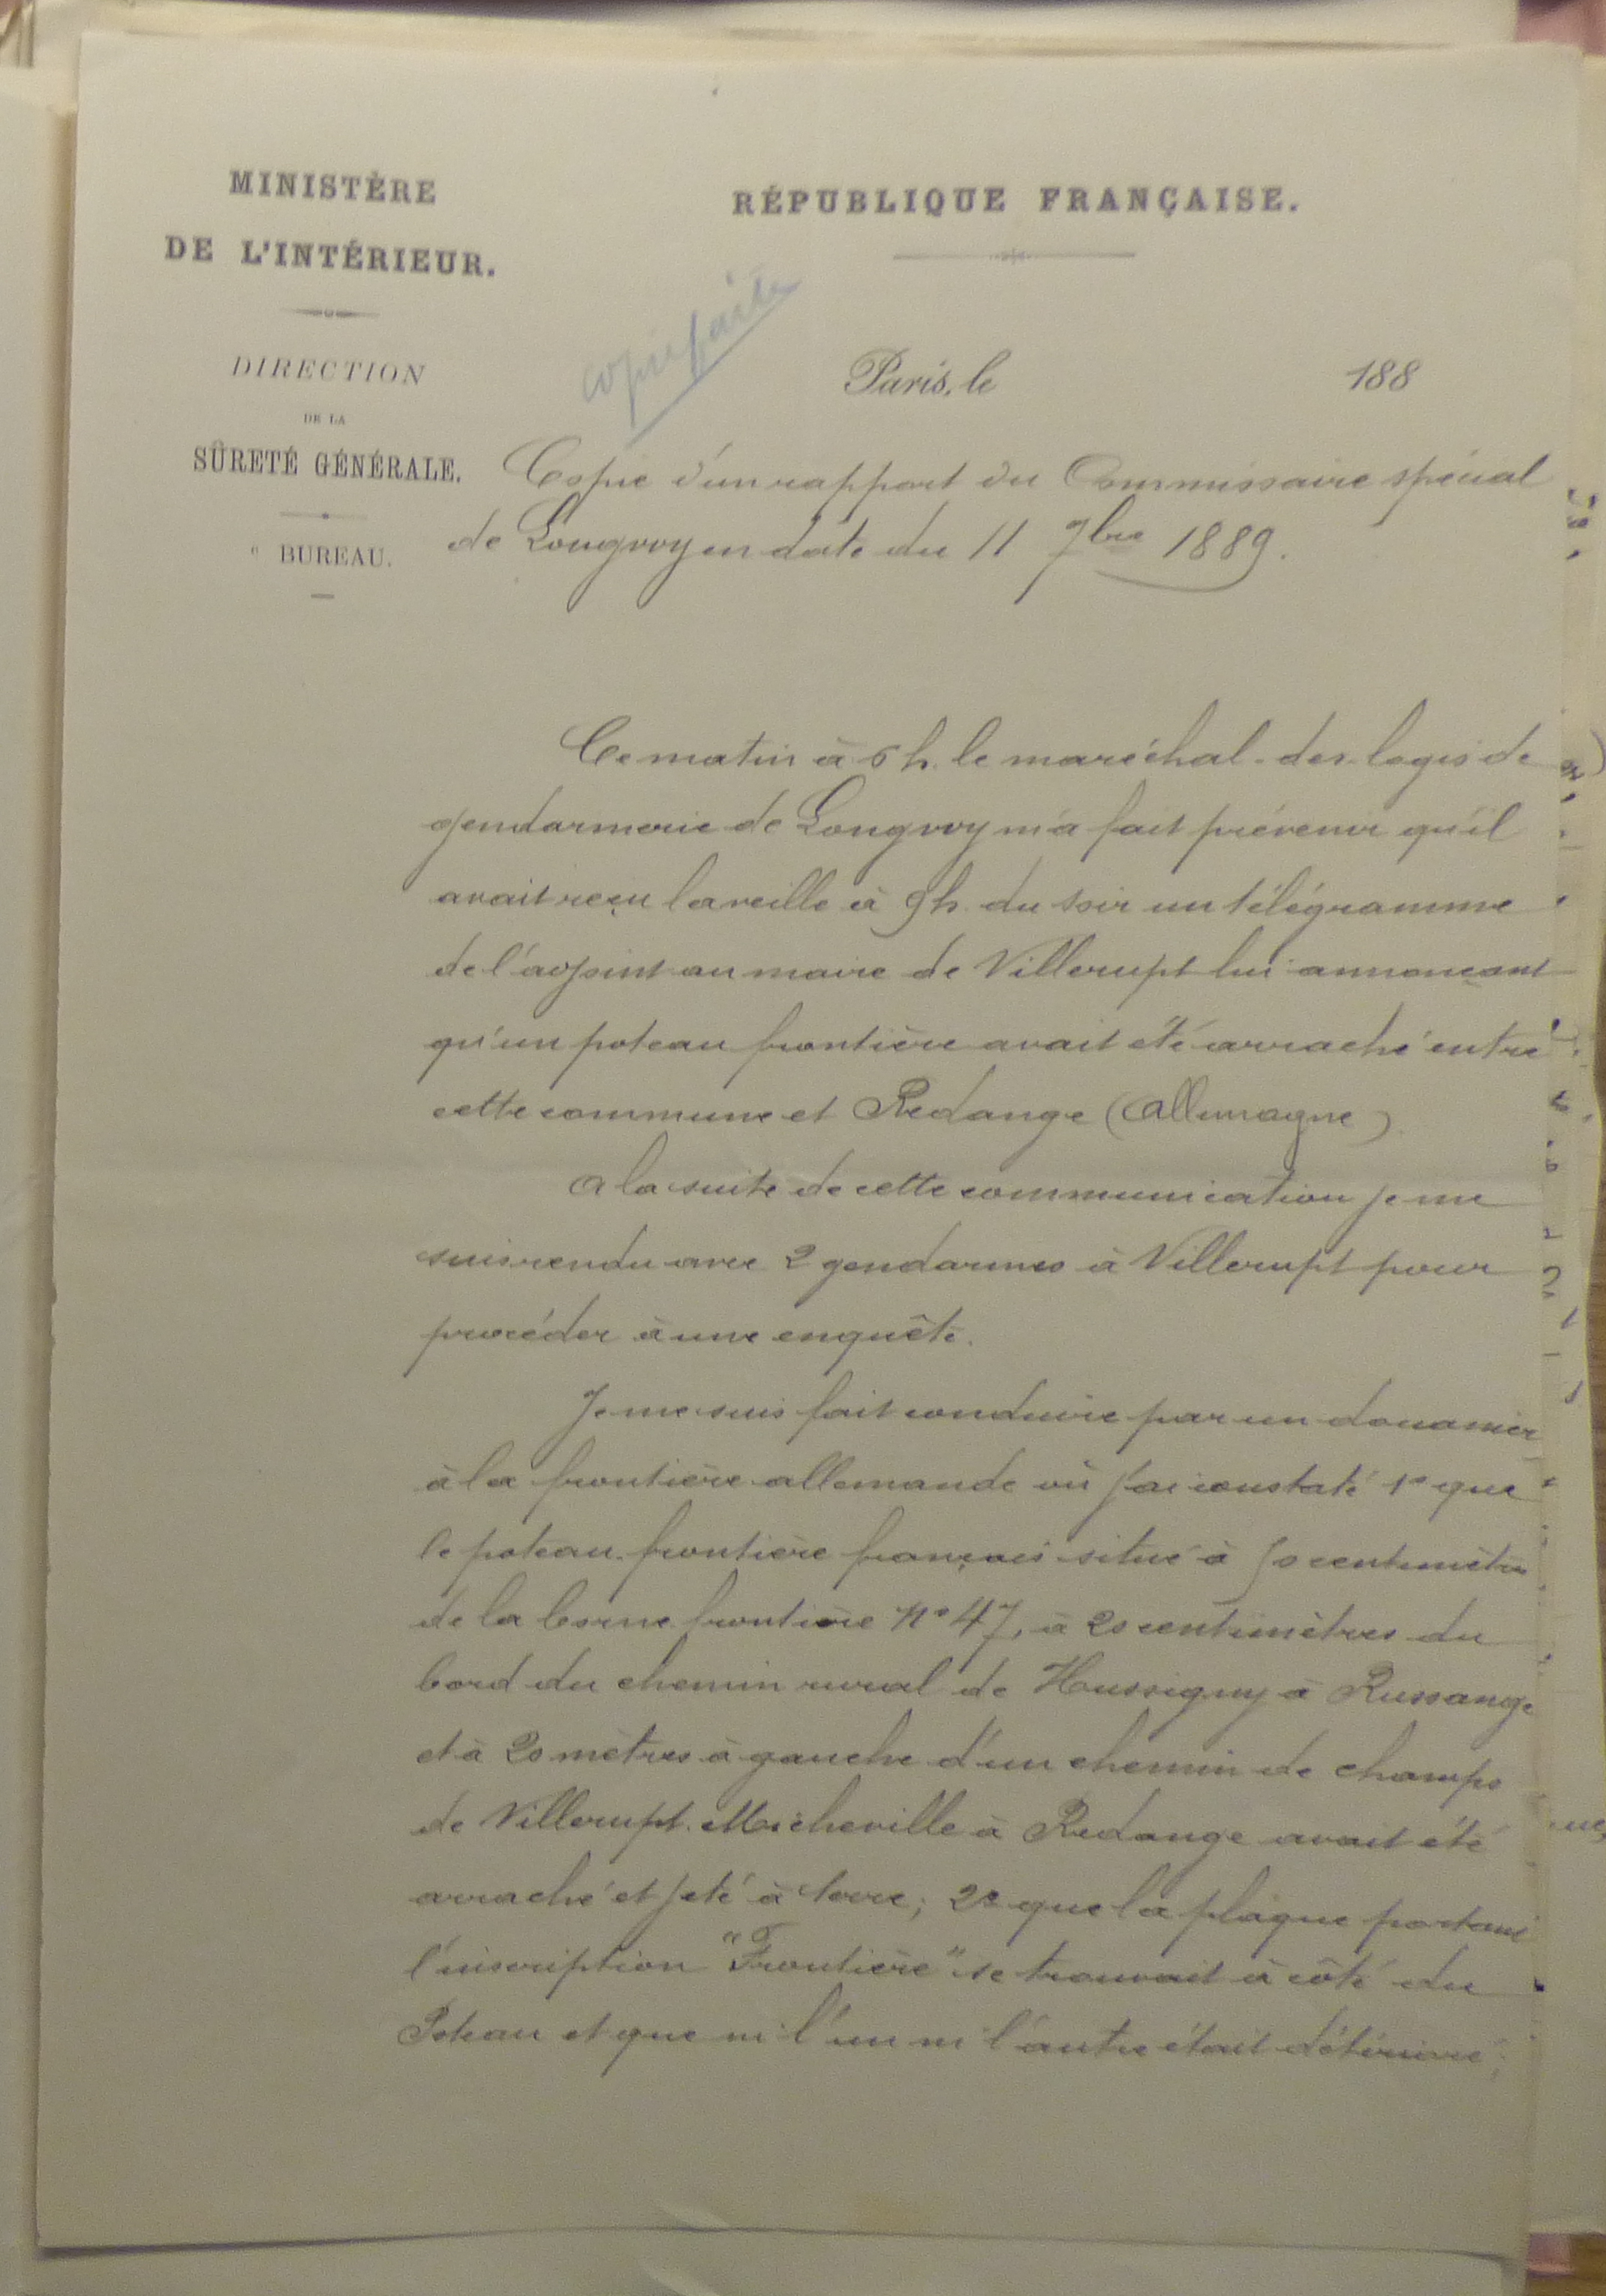 MINISTÈRE
DE L'INTÉRIEUR.
DIRECTION
DE LA
SÛRETÉ GÉNÉRALE.
" BUREAU.
RÉPUBLIQUE FRANÇAISE.
copie faite
Paris, le 188
Copie d'un rapport du Commissaire spécial
de Longwy en date du 11 7bre 1889.
Ce matin à 6 h. le maréchal-des-logis de
gendarmerie de Longwy m'a fait prévenir qu'il
avait reçu la veille à 9h. du soir un télégramme
de l'adjoint au maire de Villerupt lui annonçant
qu'un poteau frontière avait été arraché entre
cette commune et Redange (Allemagne)
A la suite de cette communication je me
suis rendu avec 2 gendarmes à Villerupt pour
procéder à une enquête.
Je me suis fait conduire par un douanier
à la frontière allemande où j'ai constaté 1° que
le poteau-frontière français situé à 50 centimètres
de la borne frontière N° 47, à 20 centimètres du
bord du chemin rural de Hussigny à Russange
et à 20 mètres à gauche d'un chemin de champs
de Villerupt-Micheville à Redange avait été
arraché et jeté à terre; 2° que la plaque portant
l'inscription "Frontière" se trouvait à côté du
Poteau et que ni l'un ni l'autre était détérioré;